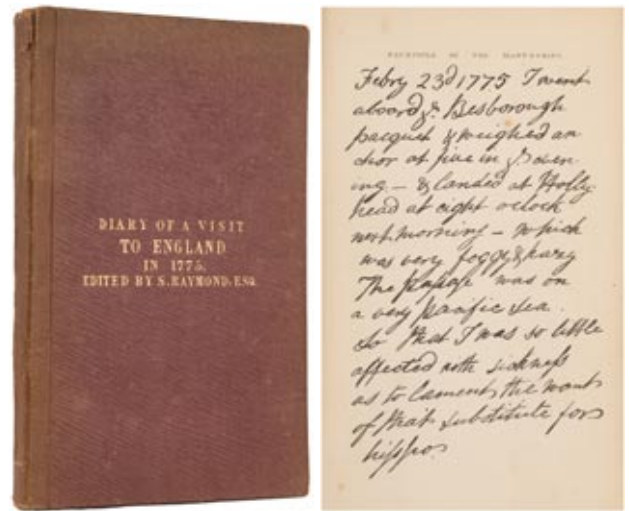 DIARY OF A VISIT
TO ENGLAND
IN 1775.
EDITED BY S. RAYMOND, ESQ.
FACSIMILE OF THE MANUSCRIPT
Febry 23d 1775 I went
aboard ye Besborough
pacquet & weighed an
chor at five in ye even
ing – & landed at Holly
head at eight oclock
next morning – which
was very foggy &
The passage was on
a very pacific sea.
So that I was so little
affected with sickness
as to lament the want
of that substitute for
hippo